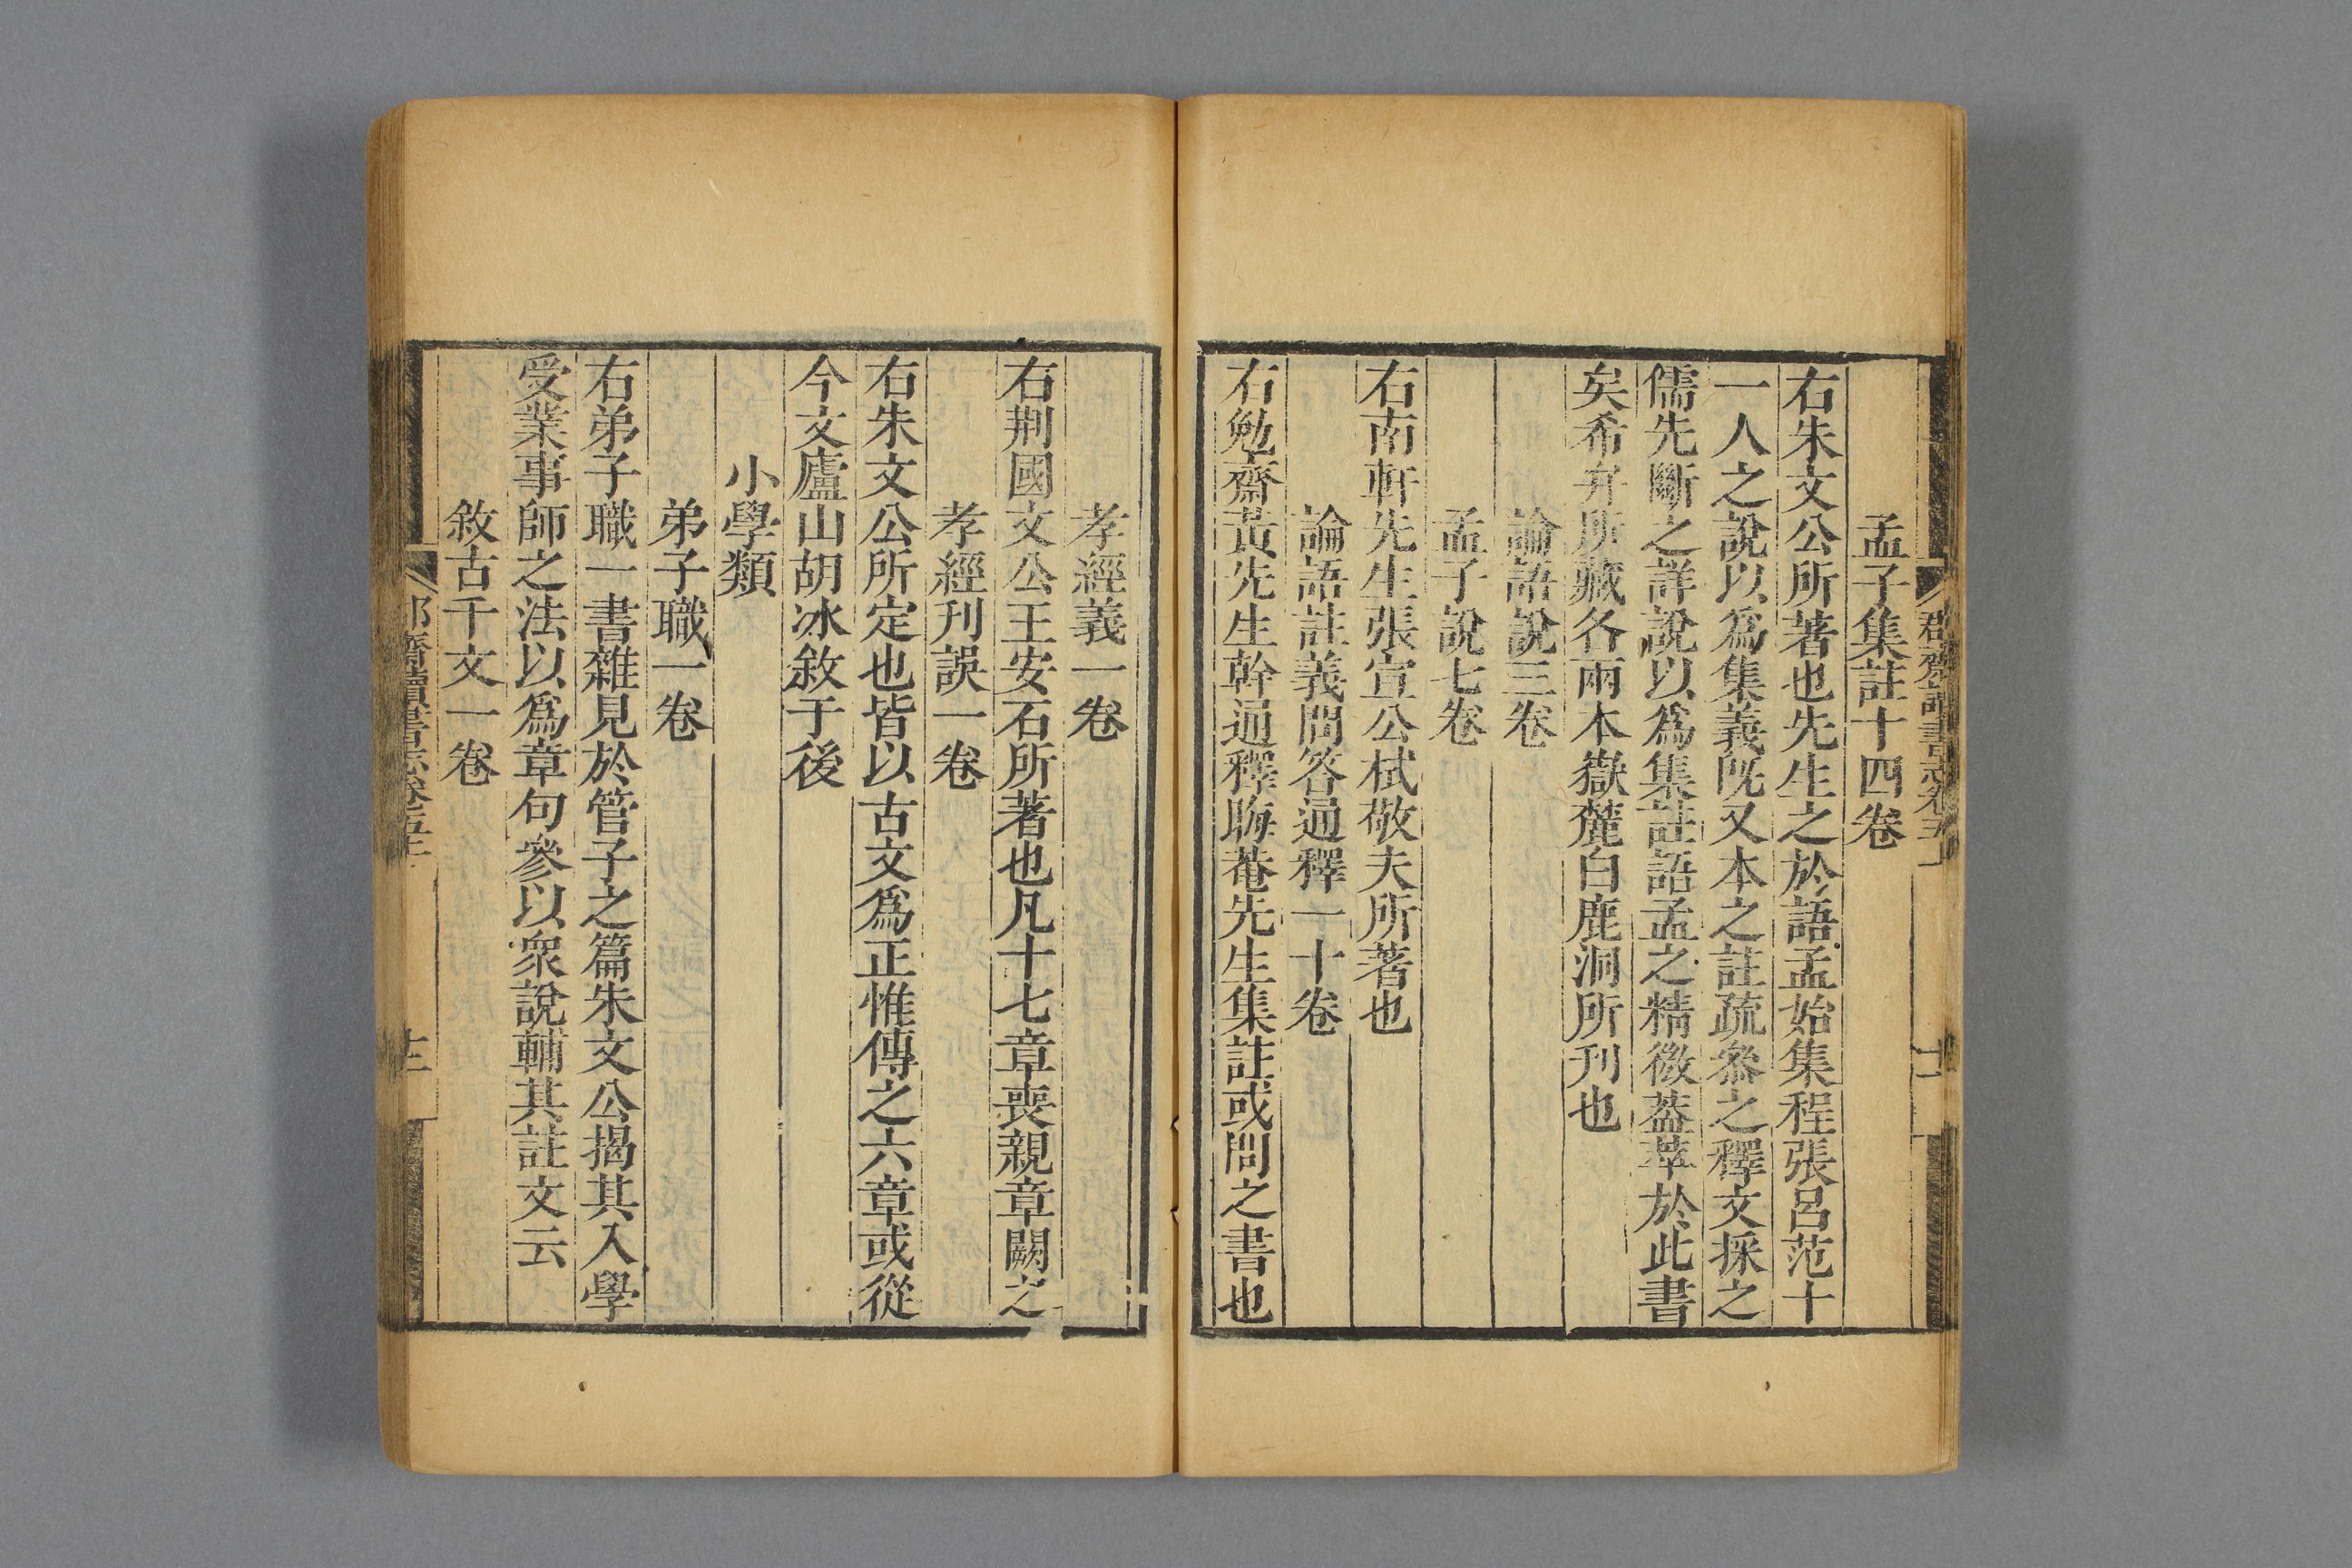 孟子集註十四卷
右朱文公所著也先生之於語孟始集程張呂范十
一人之說以爲集義旣又本之註疏叅之釋文採之
儒先斷之詳說以爲集註語孟之精微葢萃於此書
矣希弁所藏各兩本嶽麓白鹿洞所刊也
論語說三卷
孟子說七卷
右南軒先生張宣公栻敬夫所著也
論語註義問答通釋一十卷
右勉齋黃先生幹通釋晦菴先生集註或問之書也
孝經義一卷
右荆國文公王安石所著也凡十七章喪親章闕之
孝經刋誤一卷
右朱文公所定也皆以古文爲正惟傳之六章或從
今文廬山胡冰敘于後
小學類
弟子職一卷
右弟子職一書雜見於管子之篇朱文公揭其入學
受業事師之法以爲章句參以衆說輔其註文云
敘古千文一卷